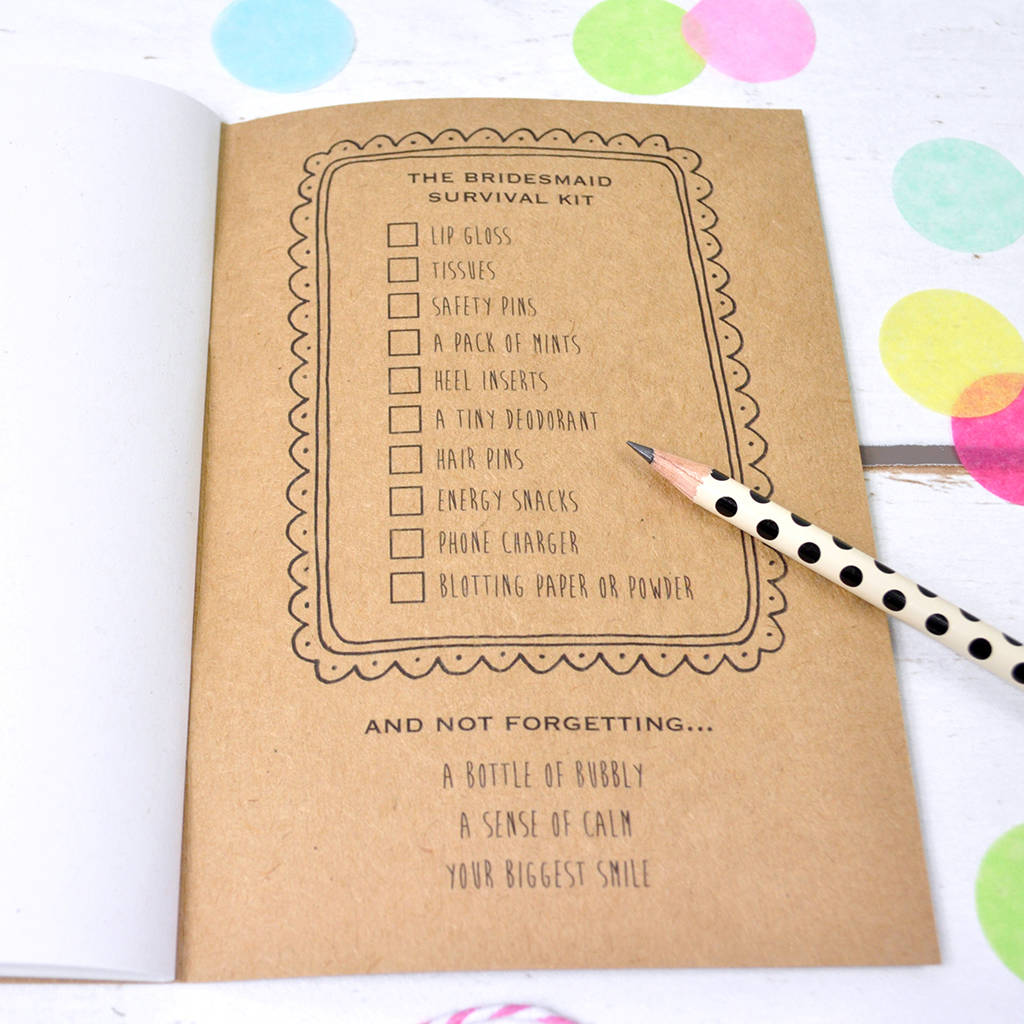 THE BRIDESMAID
SURVIVAL KIT
LIP GLOSS
TISSUES
SAFETY PINS
A PACK OF MINTS
HEEL INSERTS
A TINY DEODORANT
HAIR PINS
ENERGY SNACKS
PHONE CHARGER
BLOTTING PAPER OR POWDER
AND NOT FORGETTING...
A BOTTLE OF BUBBLY
A SENSE OF CALM
YOUR BIGGEST SMILE